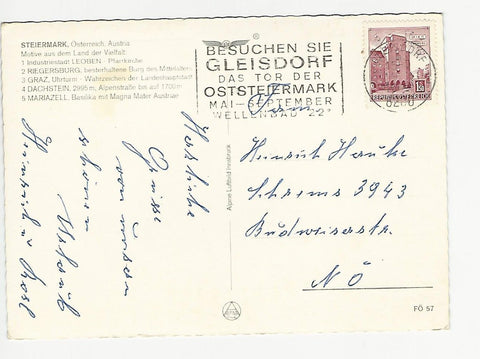 STEIERMARK, Österreich, Austria
Motive aus dem Land der Vielfalt
1 Industriestadt LEOBEN - Pfarrkirche
2 RIEGERSBURG, besterhaltene Burg des Mittelalters
3 GRAZ, Uhrturm - Wahrzeichen der Landeshauptstadt
4 DACHSTEIN, 2995 m, Alpenstraße bis auf 1700 m
5 MARIAZELL, Basilika mit Magna Mater Austriae
BESUCHEN SIE
GLEISDORF
DAS TOR DER
OSTSTEIERMARK
MAI - SEPTEMBER
WELLENBAD 22°
8200
REPUBLIK ÖSTERREICH
Herzliche
Grüsse
von unserem
schönen
Urlaub
Heinrich u. Rosl
Alpine Luftbild Innsbruck
Fam.
Heinrich Hauke
Schrems 3943
Budweiserstr.
NÖ
FÖ 57